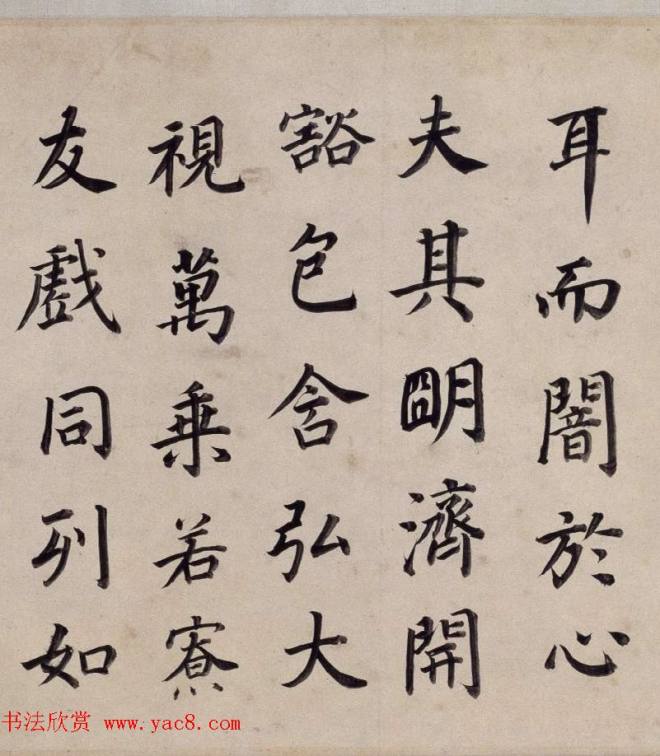 耳而闇於心
夫其明濟開
豁包含弘大
視萬乗若寮
友戲同列如
书法欣赏 www.yac8.com